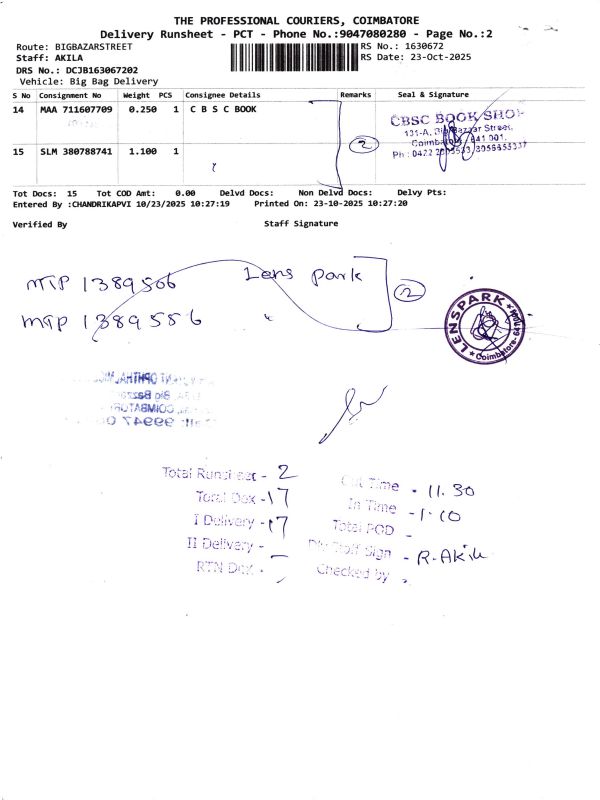 THE PROFESSIONAL COURIERS, COIMBATORE
Delivery Runsheet - PCT - Phone No.:9047080280 - Page No.:2
Route: BIGBAZARSTREET
RS No.: 1630672
Staff: AKILA
RS Date: 23-Oct-2025
DRS No.: DCJB163067202
Vehicle: Big Bag Delivery
S No Consignment No Weight PCS Consignee Details Remarks Seal & Signature
14 MAA 711607709 0.250 1 C B S C BOOK
CBSC BOOK SHOP
131-A, Big Bazaar Street,
Coimbatore 641 001.
Ph : 0422
2
15 SLM 380788741 1.100 1
"
Tot Docs: 15 Tot COD Amt: 0.00 Delvd Docs: Non Delvd Docs: Delvy Pts:
Entered By :CHANDRIKAPVI 10/23/2025 10:27:19 Printed On: 23-10-2025 10:27:20
Verified By Staff Signature
MTP 1389506 Lens park
2
MTP 1389556 "
LENSPARK
Coimbatore
Total Runsheet - 2
Out Time - 11.30
Total Dox - 17
In Time - 1.10
I Delivery - 17
Total POD -
II Delivery -
Dly Staff Sign - R.Akila
RTN Dox -
Checked by